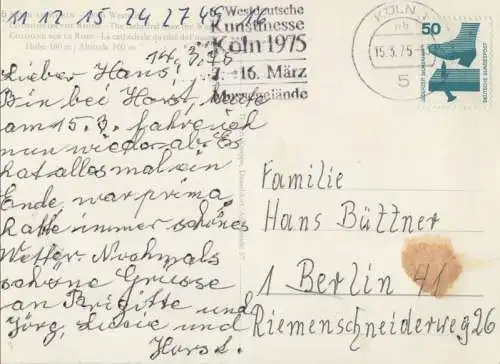 11 12 15 24 27 45 16
Westdeutsche
Kunstmesse
Köln 1975
16. März
Messegelände
KÖLN
15.3.75
5
50
DEUTSCHE BUNDESPOST
14.3.75
Lieber Hans!
Bin bei Horst, heute
am 15.3. fahre ich
nun wieder ab. Es
hat alles mal ein
Ende, war prima
hatte immer schönes
Wetter. Nochmals
schöne Grüsse
an Brigitte und
Jörg, und
Horst.
Familie
Hans Büttner
1 Berlin 41
Riemenschneiderweg 26